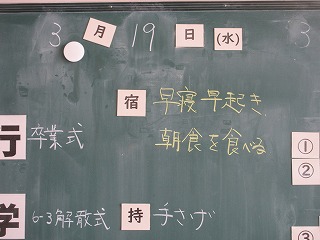 3月19日(水) 3
宿 早寝早起き
朝食を食べる
行 卒業式
①
②
学 6-3解散式
持 手さげ
③